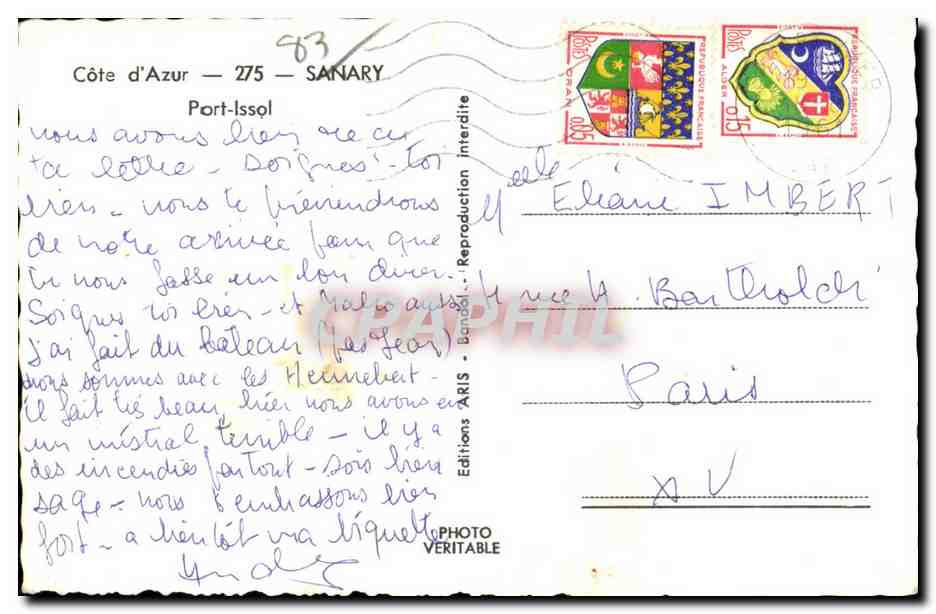 83
Côte d'Azur — 275 — SANARY
Port-Issol
nous avons bien reçu
ta lettre - Soignes-toi
bien - nous te préviendrons
de notre arrivée pour que
tu nous fasse un bon diner.
Soignes toi bien - et aussi
J'ai fait du bateau (pas Jean)
nous sommes avec les Hennebert -
il fait très beau, hier nous avons eu
un mistral terrible - il y a
des incendies partout - sois bien
sage - nous t'embrassons bien
fort - a bientôt ma biquette
Editions ARIS - Bandol - Reproduction interdite
PHOTO
VERITABLE
CPAPHIL
Postes
REPUBLIQUE FRANÇAISE
ORAN
0,05
Postes
REPUBLIQUE FRANÇAISE
ALGER
0,15
Melle Eliane IMBERT
4 rue A. Bartholdi
Paris
XV